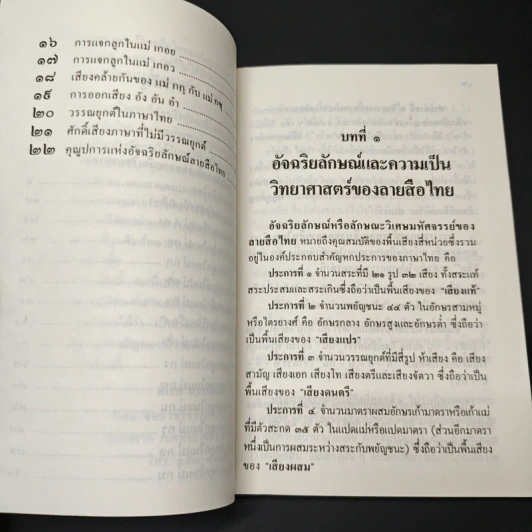 ๑๖ การแจกลูกในแม่ เกอย
๑๗ การแจกลูกในแม่ เกอว
๑๘ เสียงคล้ายกันของ แม่ กกฺ กับ แม่ กฺฤ
๑๙ การออกเสียง อัง อัน อำ
๒๐ วรรณยุกต์ในภาษาไทย
๒๑ ศักดิ์เสียงภาษาที่ไม่มีวรรณยุกต์
๒๒ คุณูปการแห่งอัจฉริยลักษณ์ลายสือไทย
บทที่ ๑
อัจฉริยลักษณ์และความเป็น
วิทยาศาสตร์ของลายสือไทย
อัจฉริยลักษณ์หรือลักษณะวิเศษมหัศจรรย์ของ
ลายสือไทย หมายถึงคุณสมบัติของพื้นเสียงสี่หน่วยซึ่งรวม
อยู่ในองค์ประกอบสำคัญหกประการของภาษาไทย คือ
ประการที่ ๑ จำนวนสระที่มี ๒๑ รูป ๓๒ เสียง ทั้งสระแท้
สระประสมและสระเกินซึ่งถือว่าเป็นพื้นเสียงของ "เสียงแท้"
ประการที่ ๒ จำนวนพยัญชนะ ๔๔ ตัว ในอักษรสามหมู่
หรือไตรยางศ์ คือ อักษรกลาง อักษรสูงและอักษรต่ำ ซึ่งถือว่า
เป็นพื้นเสียงของ "เสียงแปร"
ประการที่ ๓ จำนวนวรรณยุกต์ที่มีสี่รูป ห้าเสียง คือ เสียง
สามัญ เสียงเอก เสียงโท เสียงตรีและเสียงจัตวา ซึ่งถือว่าเป็น
พื้นเสียงของ "เสียงดนตรี"
ประการที่ ๔ จำนวนมาตราผสมอักษรเก้ามาตราหรือเก้าแม่
ที่มีตัวสะกด ๓๕ ตัว ในแปดแม่หรือแปดมาตรา (ส่วนอีกมาตรา
หนึ่งเป็นการผสมระหว่างสระกับพยัญชนะ) ซึ่งถือว่าเป็นพื้นเสียง
ของ "เสียงผสม"